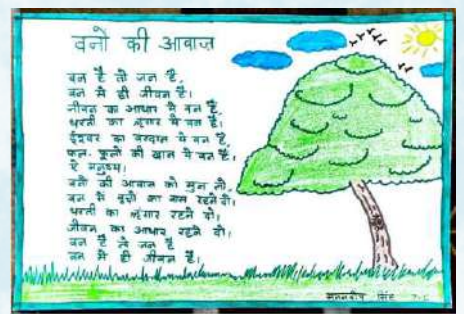 वनो की आवाज़
वन है तो जन है,
वन से ही जीवन है।
जीवन का आधार ये वन है,
धरती का श्रृंगार ये वन है।
ईश्वर का वरदान ये वन है,
फल-फूलो की खान ये वन है,
ऐ मनुष्य।
वनो की आवाज को सुन लो,
वन में वृक्षों का वास रहने दो।
धरती का श्रृंगार रहने दो,
जीवन का आधार रहने दो,
वन है तो जन है
वन से ही जीवन है।
सिंह